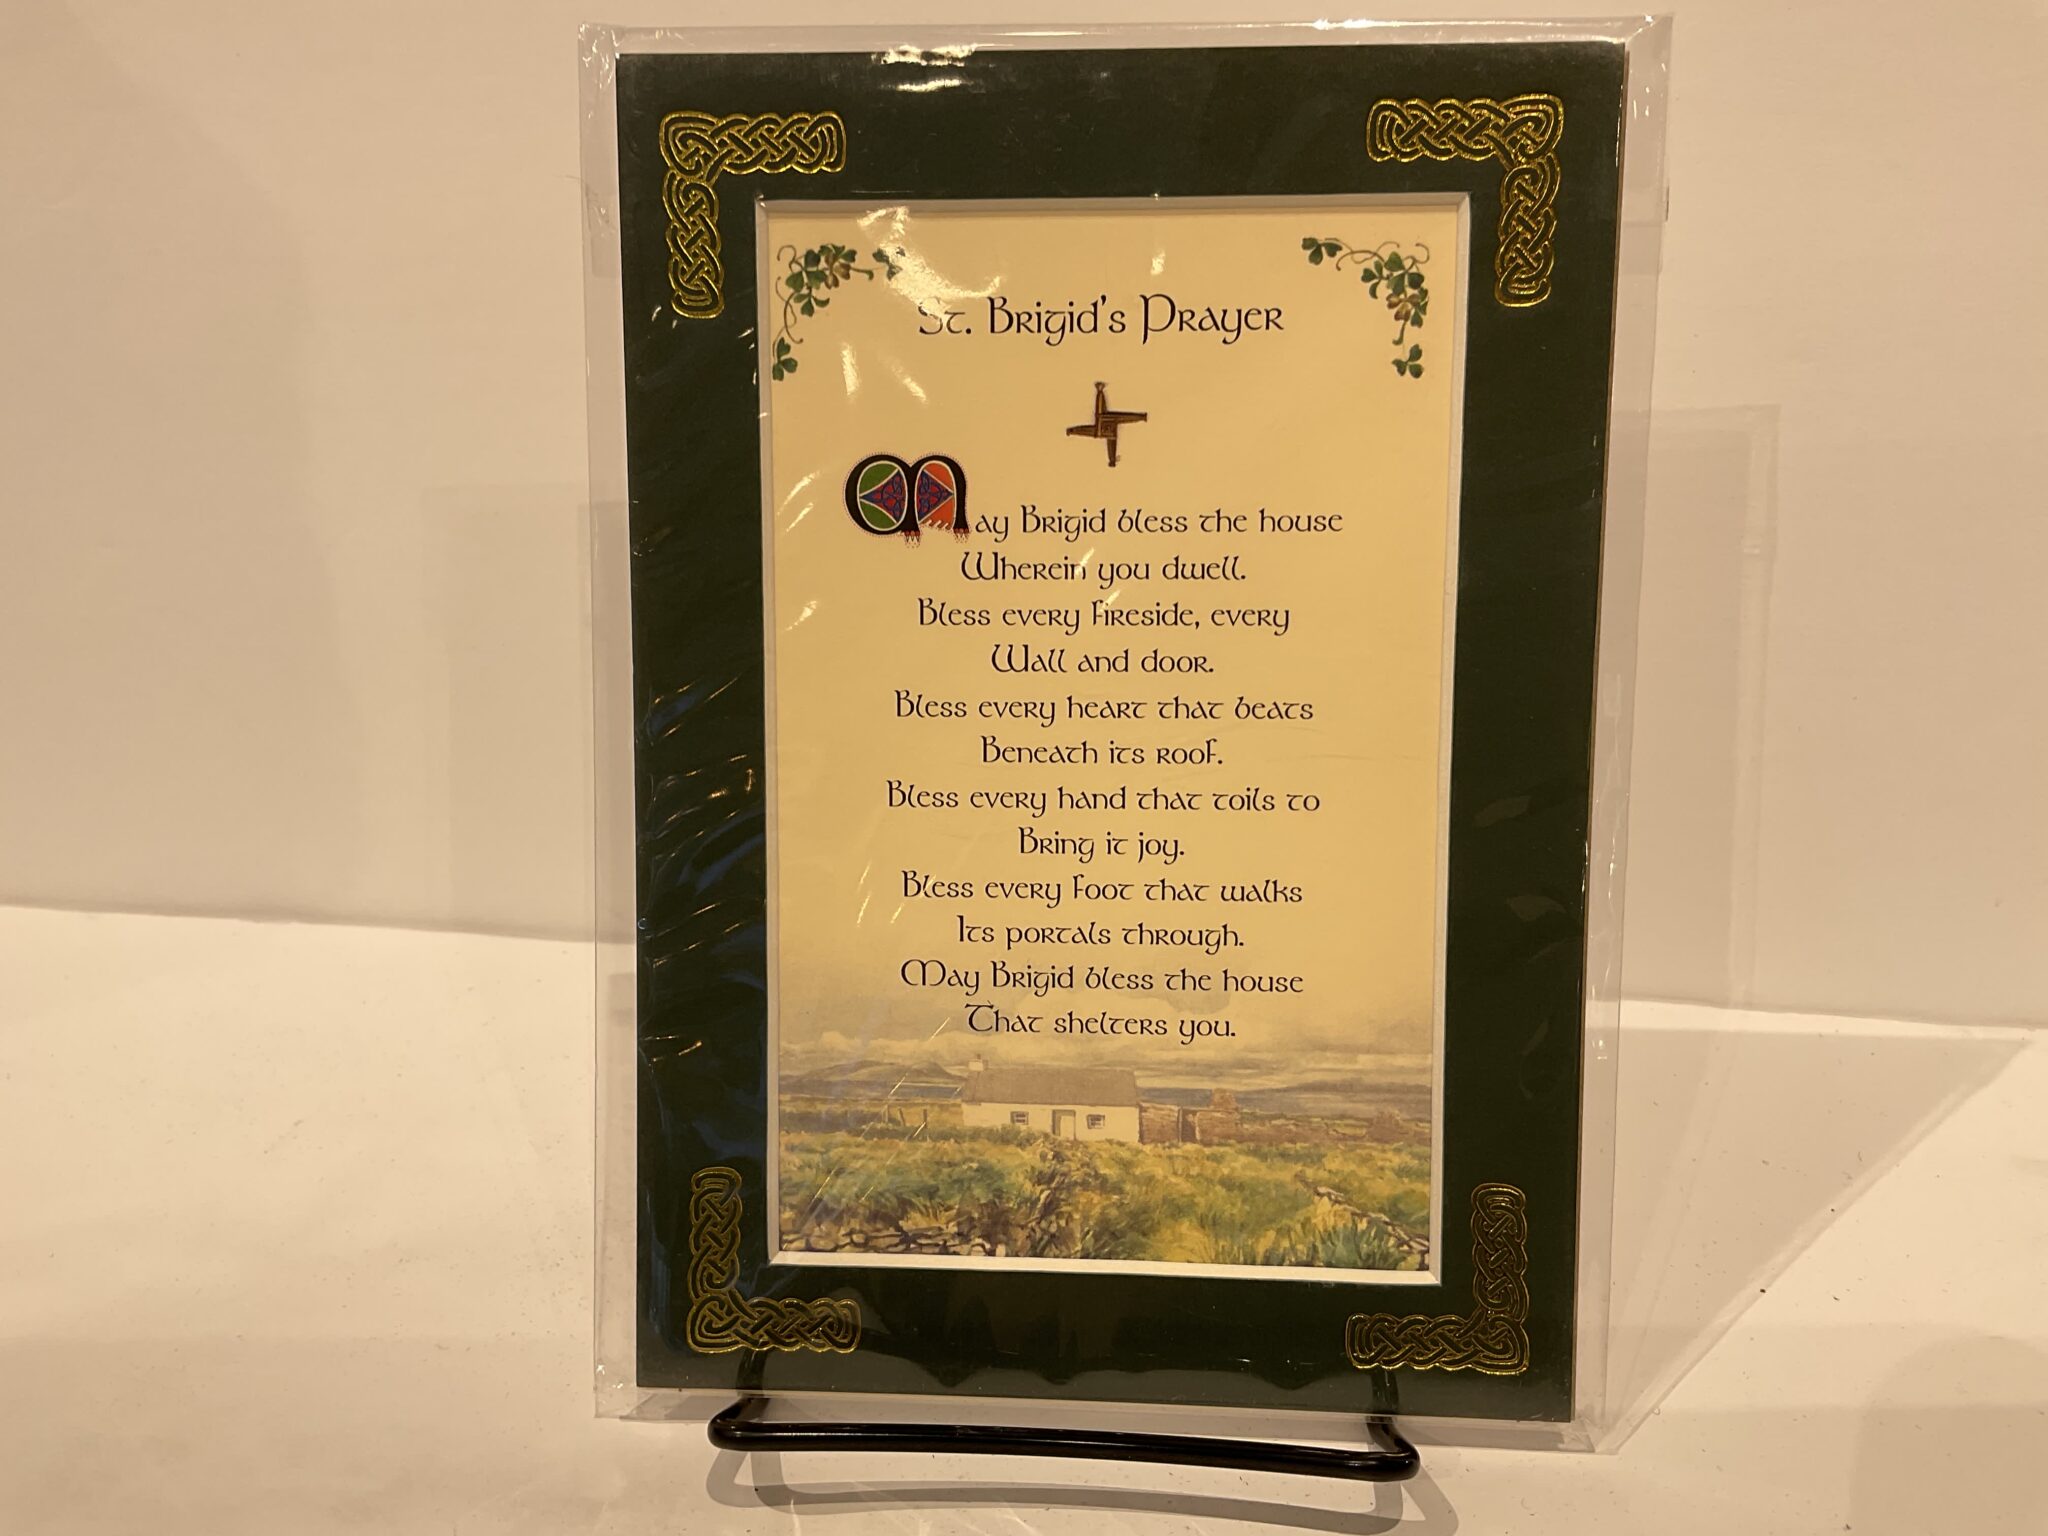 St. Brigid's Prayer
May Brigid bless the house
Wherein you dwell.
Bless every fireside, every
Wall and door.
Bless every heart that beats
Beneath its roof.
Bless every hand that toils to
Bring it joy.
Bless every foot that walks
Its portals through.
May Brigid bless the house
That shelters you.